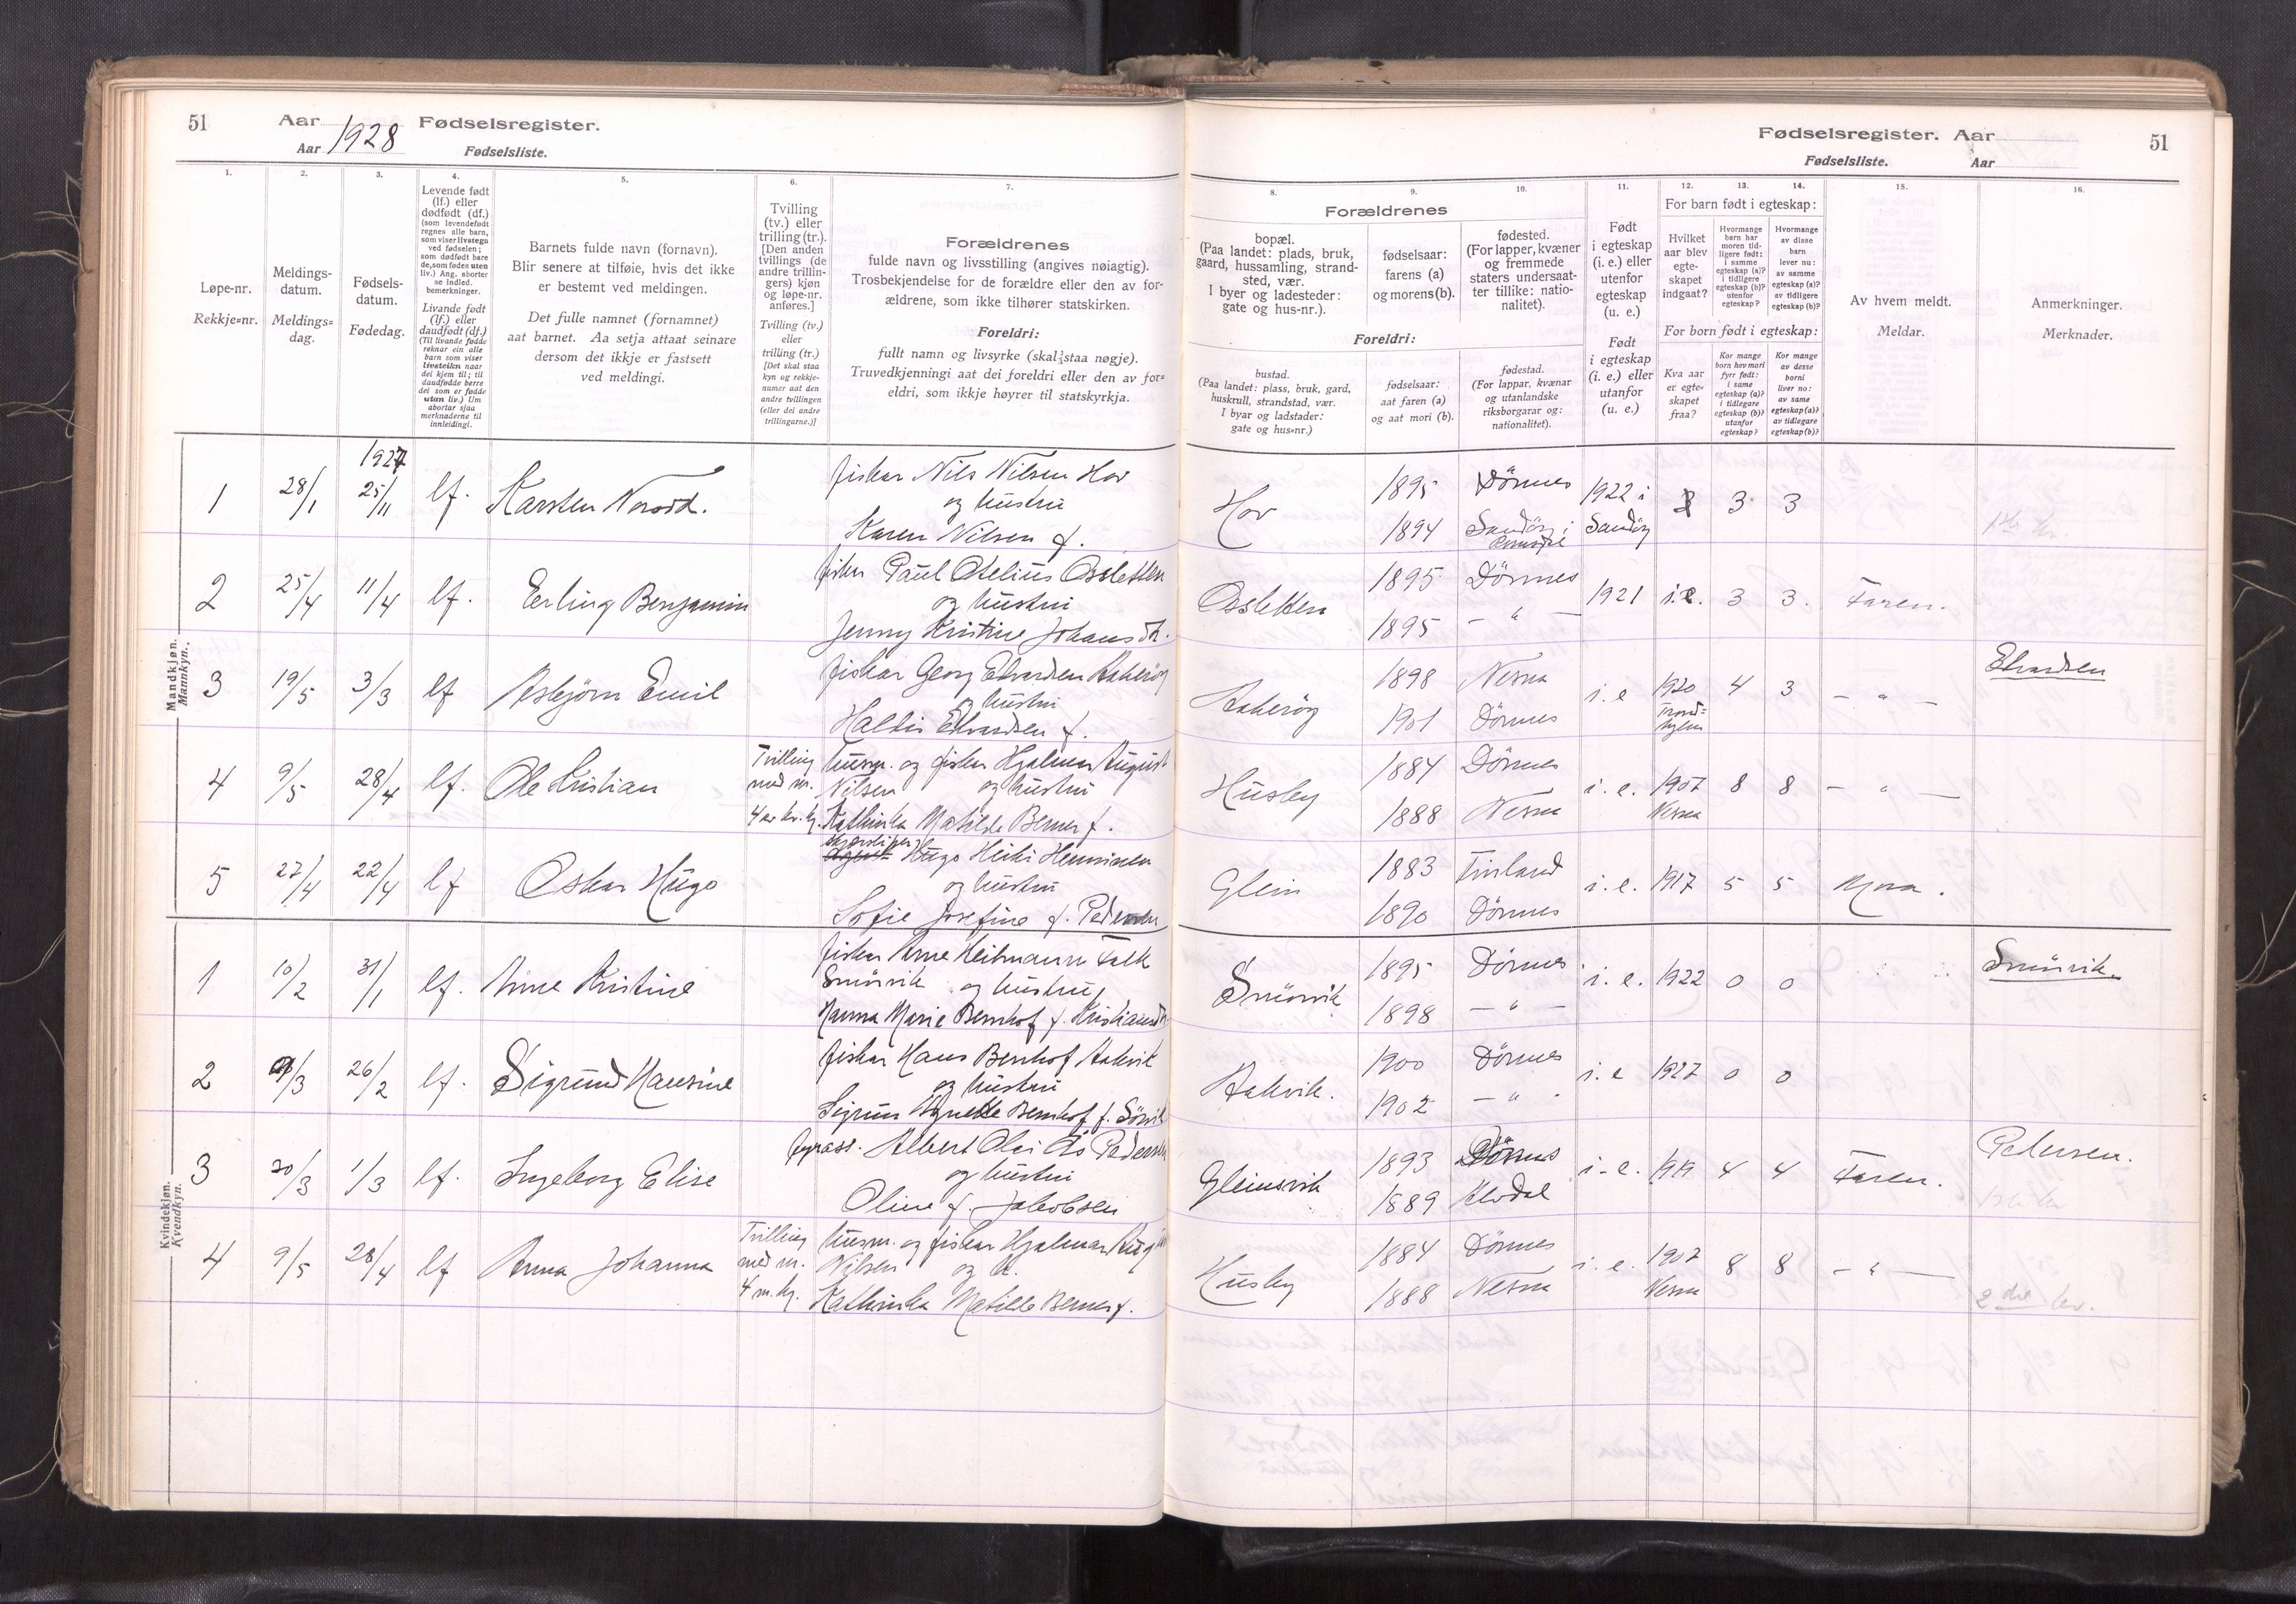 51 Aar 1928 Fødselsregister.
Aar Fødselsliste.
1. 2. 3. 4. 5. 6. 7.
Løpe-nr.
Rekkje=nr.
Meldings-
datum.
Meldings=
dag.
Fødsels-
datum.
Fødedag.
Levende født
(lf.) eller
dødfødt (df.)
(som levendefødt
regnes alle barn,
som viser livstegn
ved fødselen;
som dødfødt bare
de, som fødes uten
liv.) Ang. aborter
se indled.
bemerkninger.
Livande født
(lf.) eller
daudfødt (df.)
(Til livande fødde
reknar ein alle
barn som viser
livsteikn naar
dei kjem til; til
daudfødde berre
dei som er fødde
utan liv.) Um
abortar sjaa
merknaderne til
innleidingi.
Barnets fulde navn (fornavn).
Blir senere at tilføie, hvis det ikke
er bestemt ved meldingen.
Det fulle namnet (fornamnet)
aat barnet. Aa setja attaat seinare
dersom det ikkje er fastsett
ved meldingi.
Tvilling
(tv.) eller
trilling (tr.).
[Den anden
tvillings (de
andre trillin-
gers) kjøn
og løpe-nr.
anføres.]
Tvilling (tv.)
eller
trilling (tr.)
[Det skal staa
kyn og rekkje-
numer aat den
andre tvillingen
(eller dei andre
trillingarne.)]
Forældrenes
fulde navn og livsstilling (angives nøiagtig).
Trosbekjendelse for de forældre eller den av for-
ældrene, som ikke tilhører statskirken.
Foreldri:
fullt namn og livsyrke (skal staa nøgje).
Truvedkjenningi aat dei foreldri eller den av for=
eldri, som ikkje høyrer til statskyrkja.
Mandkjøn.
Mannkyn.
1927
1 28/1 25/11 lf. Karsten Norod. fisker Nils Nilsen Hov
og hustru
Karen Nilsen f.
2 25/4 11/4 lf. Erling Benjamin fisker Paul Otelius Ossletten
og hustru
Jenny Kristine Johansdt.
3 19/5 3/3 lf Asbjørn Emil fisker Georg Edvardsen Aakerøy
og hustru
Halldis Edvardsen f.
4 9/5 28/4 lf. Ole Kristian Tvilling husm. og fisker Hjalmar August
med nr. Nilsen og hustru
4 av kv. kj. Kathinka Matilde Berner f.
5 27/4 22/4 lf Oskar Hugo Hugo Heiki Henninen
og hustru
Sofie Josefine f. Pedersen
Kvindekjøn.
Kvendkyn.
1 10/2 31/1 lf. Anne Kristine fisker Arne Heitmann Falk
Smørvik og hustru
Hanna Marie Bernhof f. Kristiansdt
2 /3 26/2 lf. Sigrund Hansine fisker Hans Bernhof Aakvik
og hustru
Sigrun Agnethe Bernhof f. Sørvik
3 20/3 1/3 lf. Ingeborg Elise fyrass. Albert Olai Ås Pedersen
og hustru
Oline f. Jakobsen
4 9/5 28/4 lf Anna Johanna Tvilling husm. og fisker Hjalmar Aug
med nr. Nilsen og h.
4 m. kj. Kathinka Matilde Berner f.
Fødselsregister. Aar 51
Fødselsliste. Aar
8. 9. 10. 11. 12. 13. 14. 15. 16.
Forældrenes
bopæl.
(Paa landet: plads, bruk,
gaard, hussamling, strand-
sted, vær.
I byer og ladesteder:
gate og hus-nr.).
fødselsaar:
farens (a)
og morens (b).
fødested.
(For lapper, kvæner
og fremmede
staters undersaat-
ter tillike: natio-
nalitet).
Foreldri:
bustad.
(Paa landet: plass, bruk, gard,
huskrull, strandstad, vær.
I byar og ladstader:
gate og hus=nr.)
fødselsaar:
aat faren (a)
og aat mori (b).
fødestad.
(For lappar, kvænar
og utanlandske
riksborgarar og:
nationalitet).
Født
i egteskap
(i. e.) eller
utenfor
egteskap
(u. e.)
Født
i egteskap
(i. e.) eller
utanfor
(u. e.)
For barn født i egteskap:
Hvilket
aar blev
egte-
skapet
indgaat?
Hvormange
barn har
moren tid-
ligere født:
i samme
egteskap (a)?
i tidligere
egteskap (b)?
utenfor
egteskap?
Hvormange
av disse
barn
lever nu:
av samme
egteskap (a)?
av tidligere
egteskap (b)?
For born født i egteskap:
Kva aar
er egte=
skapet
fraa?
Kor mange
born hev mori
fyrr født:
i same
egteskap (a)?
i tidlegare
egteskap (b)?
utanfor
egteskap?
Kor mange
av desse
borni
liver no:
av same
egteskap (a)?
av tidlegare
egteskap (b)?
Av hvem meldt.
Meldar.
Anmerkninger.
Merknader.
Hov 1895 Dönnes 1922 i 3 3
1894 Sandöy i Sandöy
Romsdal
Ossletten 1895 Dönnes 1921 i.e. 3 3. Faren.
1895 - " -
Aakerøy 1898 Nesna i. e 1920 4 3 - " - Edvardsen
1901 Dönnes Trond=
hjem
Husby 1884 Dönnes i. e. 1907 8 8 - " -
1888 Nesna Nesna
Glein 1883 Finland i. e. 1917 5 5
1890 Dönnes
Smörvik 1895 Dönnes i. e. 1922 0 0 Smörvik
1898 - " -
Aakvik. 1900 Dönnes i. e 1927 0 0
1902 - " -
Gleinsvik 1893 Dönnes i. e. 1919 4 4 Faren. Pedersen.
1889 Elvdal
Husby 1884 Dönnes i. e. 1907 8 8 - " -
1888 Nesna Nesna
2dre lev.